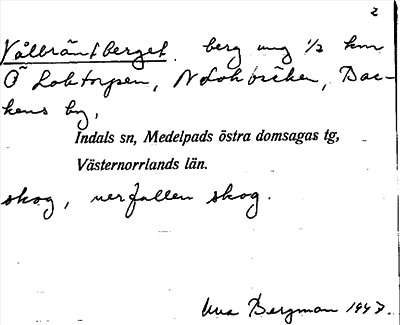 2
Vålbräntberget. berg ung ½ km
Ö Loktorpen, N Lokbäcken, Bac-
kens by,
Indals sn, Medelpads östra domsagas tg,
Västernorrlands län.
skog, nerfallen skog.
Una Bergman 1943.